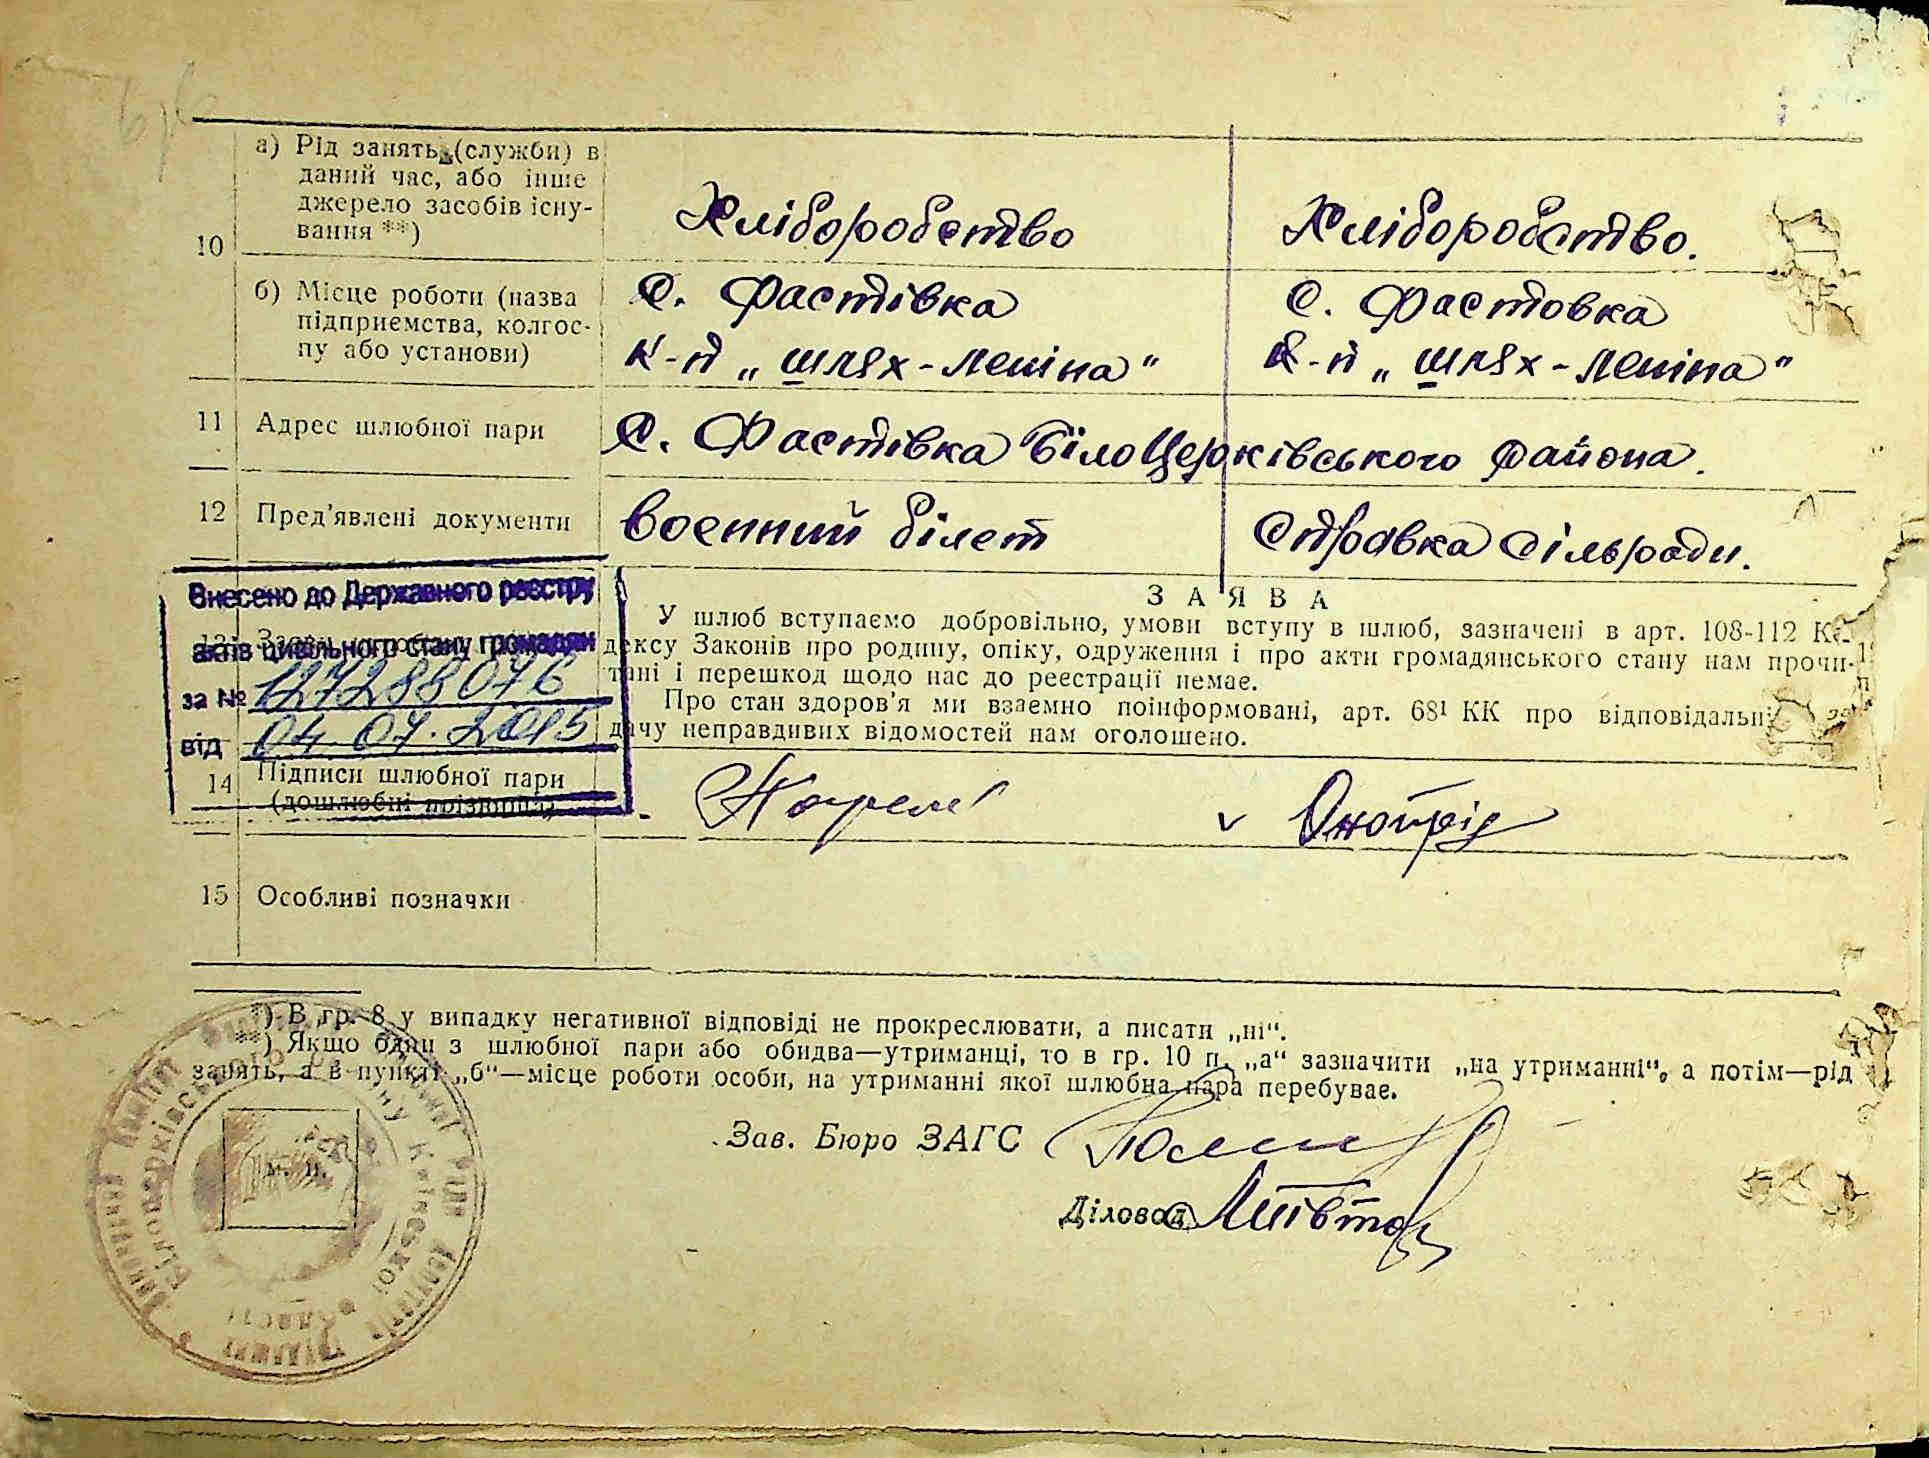 10
а) Рід занять (служби) в
даний час, або інше
джерело засобів існу-
вання **)
Хліборобство
Хліборобство.
б) Місце роботи (назва
підприємства, колгос-
пу або установи)
С. Фастівка
К-п „Шлях-Леніна"
С. Фастовка
К-п „Шлях-Леніна"
11 Адрес шлюбної пари
С. Фастівка БілоЦерківського района.
12 Пред'явлені документи
военний білет
Справка сільради.
Внесено до Державного реєстру
актів цивільного стану громадян
за № 127288076
від 04.07.2015
ЗАЯВА
У шлюб вступаємо добровільно, умови вступу в шлюб, зазначені в арт. 108-112 Ко-
дексу Законів про родину, опіку, одруження і про акти громадянського стану нам прочи-
тані і перешкод щодо нас до реєстрації немає.
Про стан здоров'я ми взаємно поінформовані, арт. 68¹ КК про відповідальн
дачу неправдивих відомостей нам оголошено.
14 Підписи шлюбної пари
(дошлюбні прізвища)
15 Особливі позначки
*) В гр. 8 у випадку негативної відповіді не прокреслювати, а писати „ні".
**) Якщо один з шлюбної пари або обидва—утриманці, то в гр. 10 п. „а" зазначити „на утриманні", а потім—рід
занять, а в пункті „б"—місце роботи особи, на утриманні якої шлюбна пара перебуває.
Зав. Бюро ЗАГС
Діловод
М. П.
Білоцерківського району Київської області